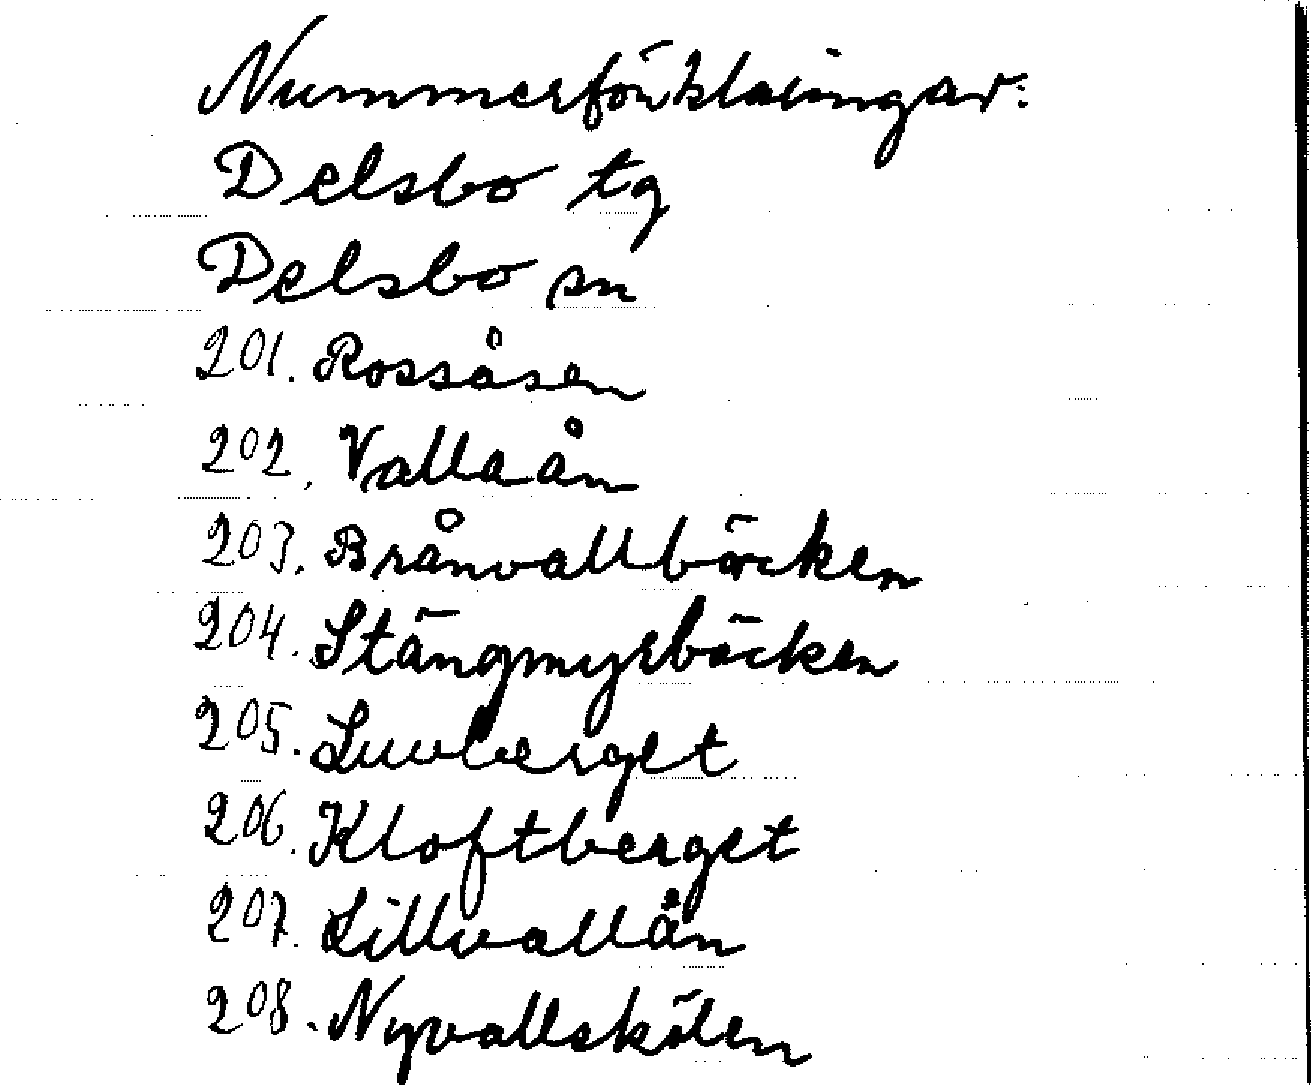 Nummerförklaringar:
Delsbo tg
Delsbo sn
201. Rossåsen
202. Vallaån
203. Brånvallbäcken
204. Stängmyrbäcken
205. Luvberget
206. Kloftberget
207. Lillvallån
208. Nyvallskölen